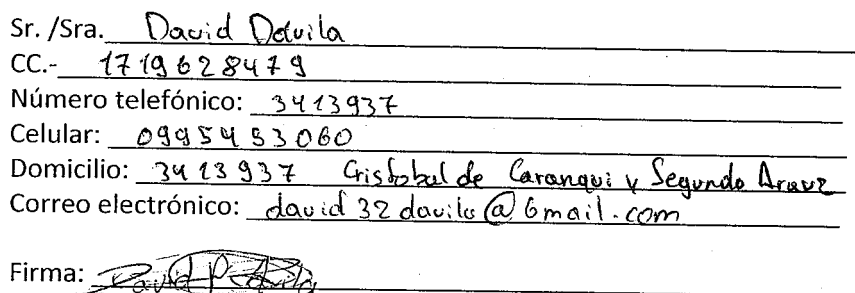 Sr. /Sra. David Dávila
CC.- 1719628479
Número telefónico: 3413937
Celular: 0995453060
Domicilio: 3413937 Cristobal de Caranqui y Segundo Arauz
Correo electrónico: david32davila@Gmail.com
Firma: David P. Dávila